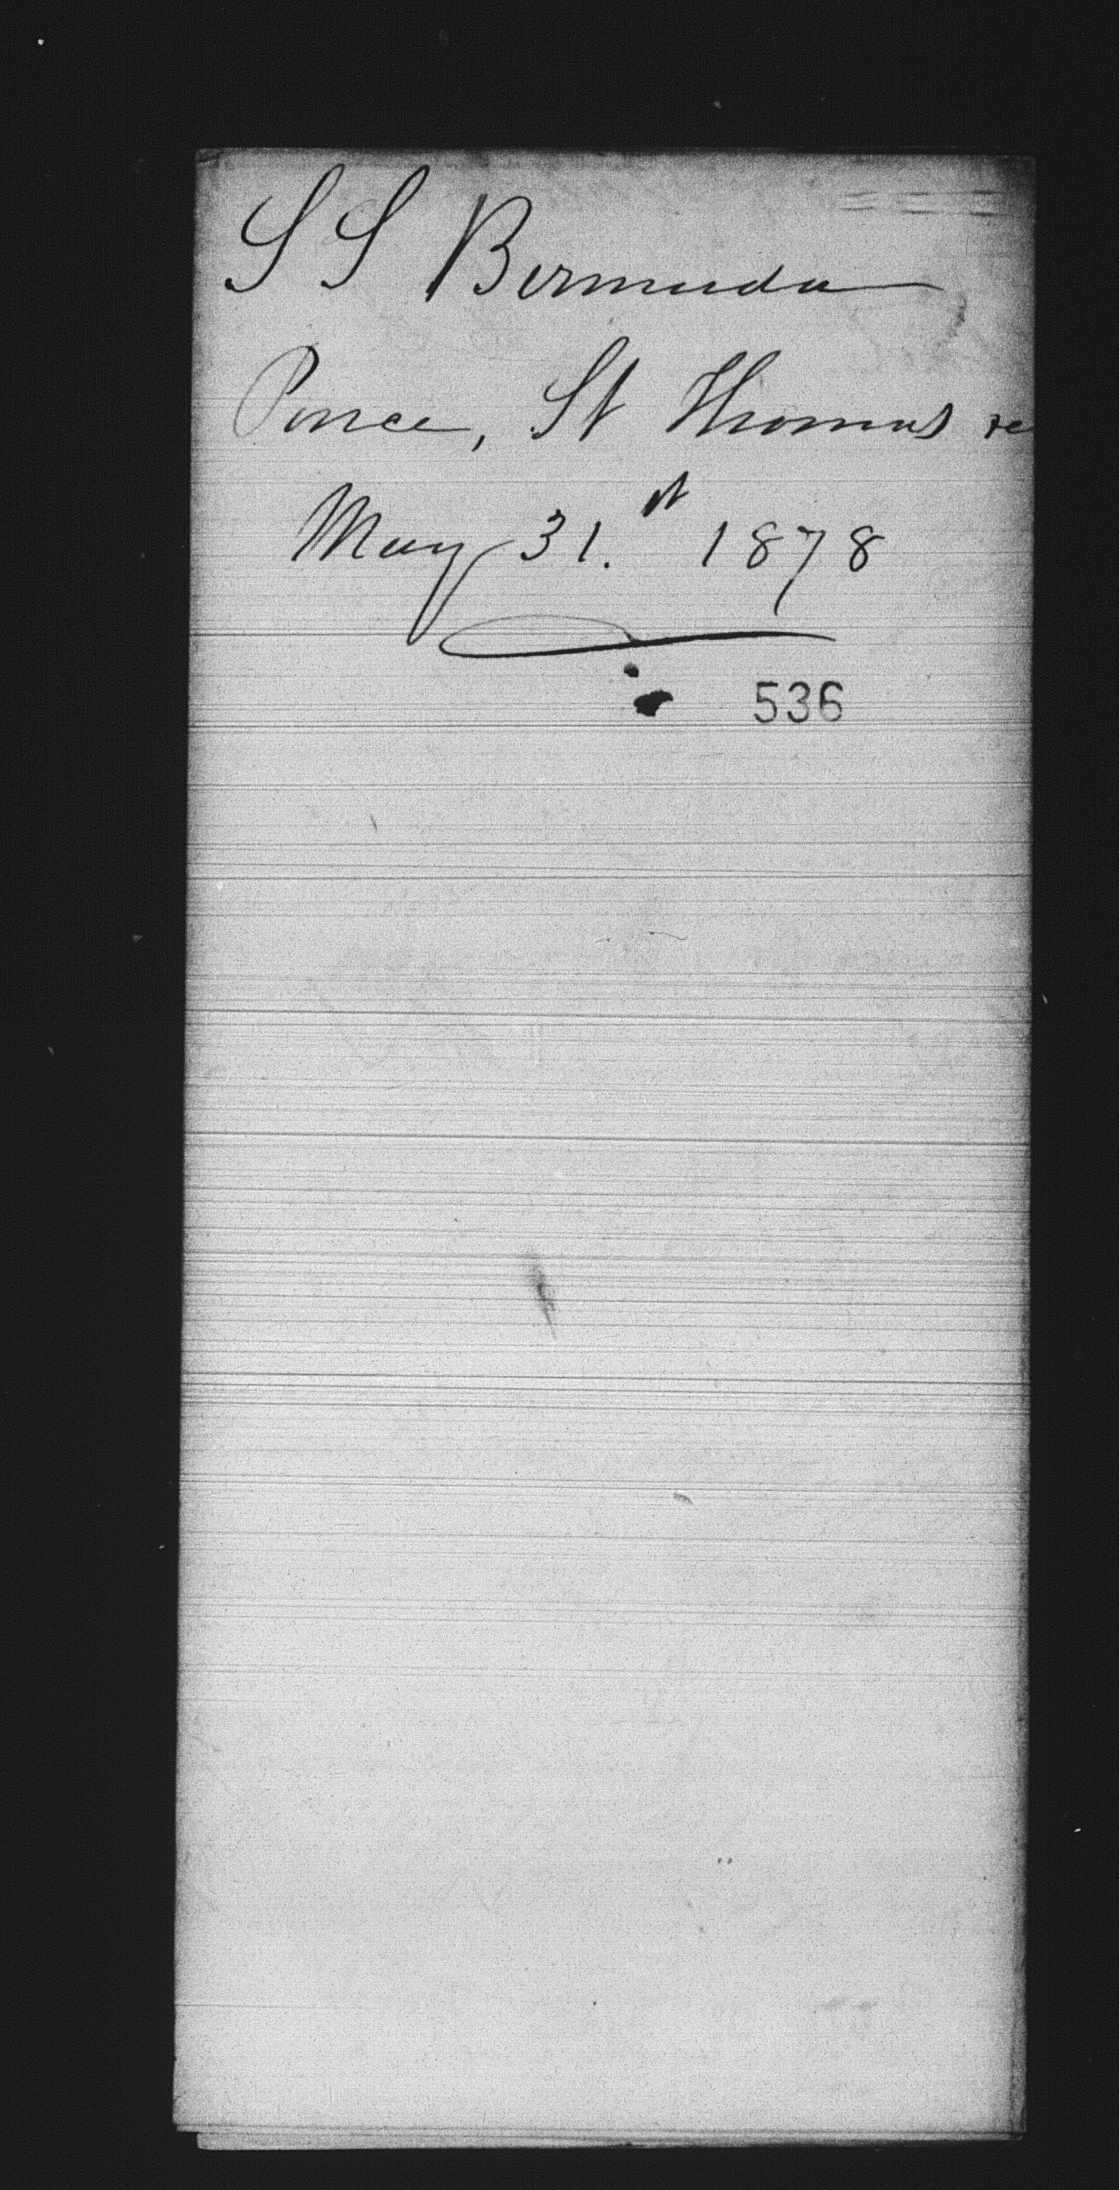 S S Bermuda
Ponce, St Thomas &c
May 31.st 1878
536